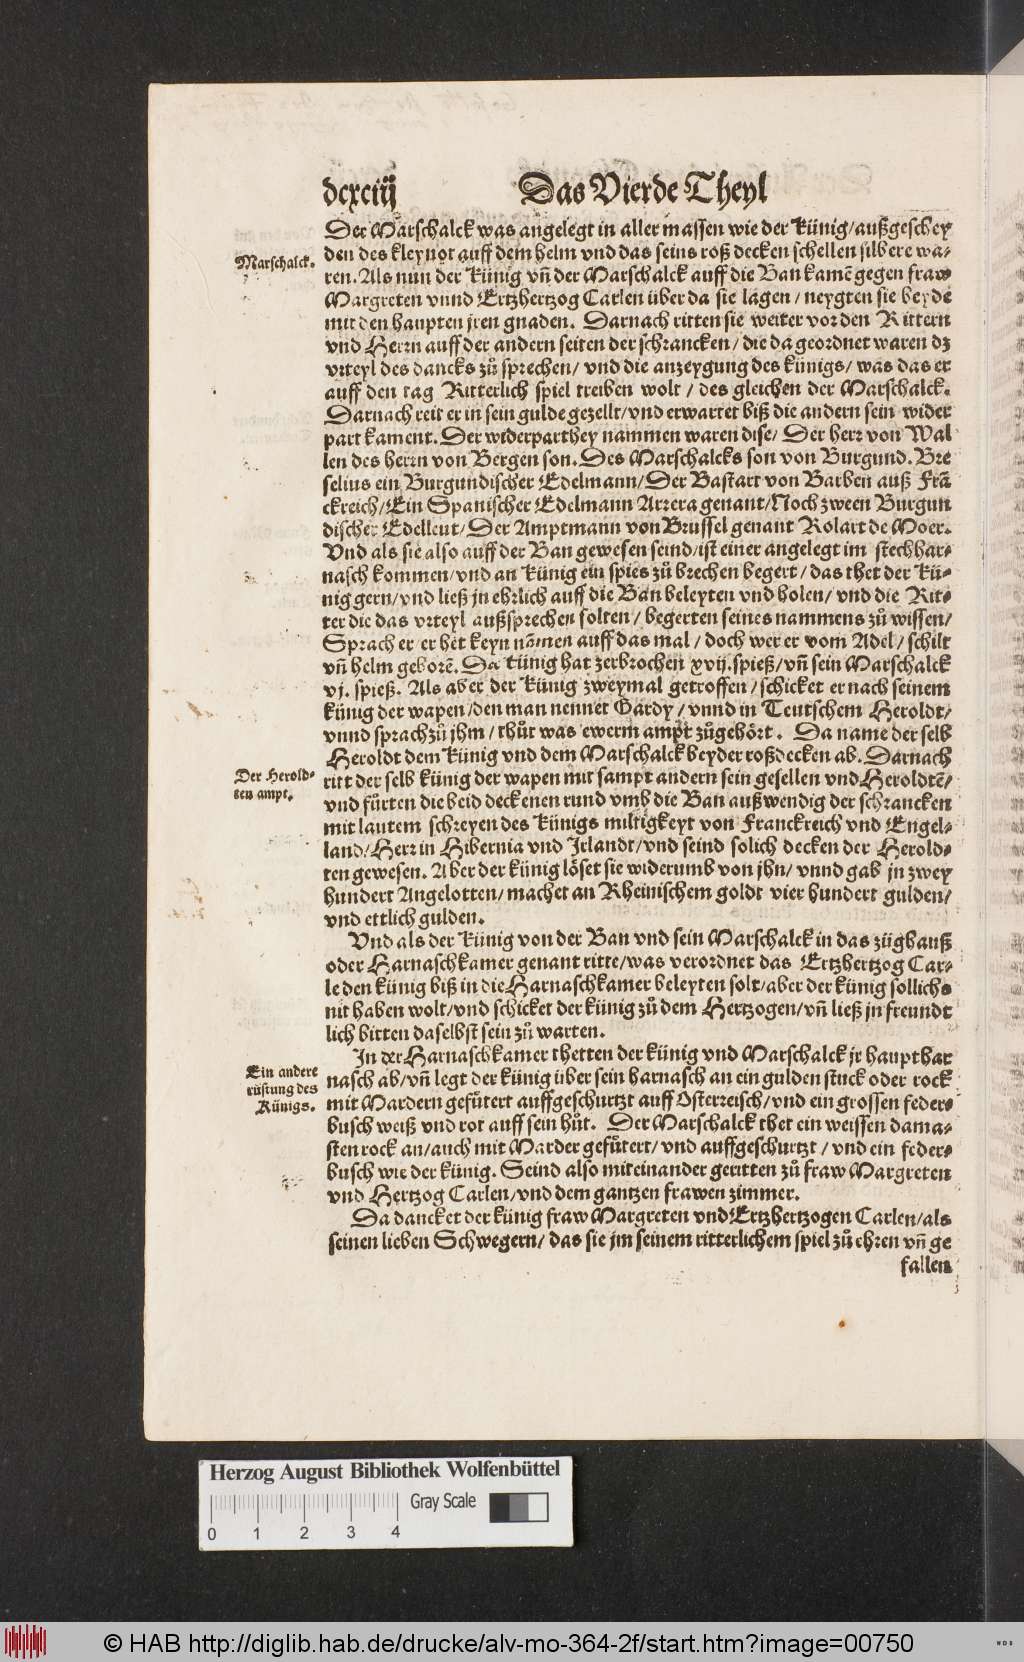 dcxciiij
Das Vierde Theyl
Der Marschalck was angelegt in aller massen wie der Künig/außgeschey
den des kleynot auff dem helm vnd das seins roß decken schellen silbere wa-
Marschalck.
ren. Als nun der Künig vñ der Marschalck auff die Ban kamẽ gegen fraw
Margreten vnnd Ertzhertzog Carlen über da sie lagen / neygten sie beyde
mit den haupten jren gnaden. Darnach ritten sie weiter vor den Rittern
vnd Herrn auff der andern seiten der schrancken / die da geordnet waren dz
vrteyl des dancks zů sprechen/ vnd die anzeygung des künigs/ was das er
auff den tag Ritterlich spiel treiben wolt / des gleichen der Marschalck.
Darnach reit er in sein gulde gezellt/vnd erwartet biß die andern sein wider
part kament. Der widerparthey nammen waren dise/ Der herr von Wal
len des herrn von Bergen son. Des Marschalcks son von Burgund. Bre
selius ein Burgundischer Edelmann/ Der Bastart von Barben auß Frã
ckreich/Ein Spanischer Edelmann Arzera genant/Noch zween Burgun
discher Edelleut/ Der Amptmann von Brussel genant Rolart de Moer.
Vnd als sie also auff der Ban gewesen seind/ist einer angelegt im stechhar-
nasch kommen/vnd an künig ein spies zů brechen begert/ das thet der Kü-
nig gern/vnd ließ jn ehrlich auff die Ban beleyten vnd holen/ vnd die Rit-
ter die das vrteyl außsprechen solten / begerten seines nammens zů wissen/
Sprach er er het keyn nãmen auff das mal / doch wer er vom Adel / schilt
vñ helm geborẽ. Da künig hat zerbrochen xvij. spieß/ vñ sein Marschalck
vj. spieß. Als aber der Künig zweymal getroffen / schicket er nach seinem
künig der wapen/den man nennet Gardy / vnnd in Teutschem Heroldt/
vnnd sprach zů jhm / thůt was ewerm ampt zůgehört. Da name der selb
Heroldt dem Künig vnd dem Marschalck beyder roßdecken ab. Darnach
Der Herold-
ten ampt.
ritt der selb künig der wapen mit sampt andern sein gesellen vnd Heroldtẽ/
vnd fůrten die beid deckenen rund vmb die Ban außwendig der schrancken
mit lautem schreyen des Künigs miltigkeyt von Franckreich vnd Engel-
land/ Herr in Hibernia vnd Irlandt/vnd seind solich decken der Herold-
ten gewesen. Aber der künig löset sie widerumb von jhn/ vnnd gab jn zwey
hundert Angelotten/ machet an Rheinischem goldt vier hundert gulden/
vnd ettlich gulden.
Vnd als der Künig von der Ban vnd sein Marschalck in das zügbauß
oder Harnaschkamer genant ritte/was verordnet das Ertzhertzog Car-
le den künig biß in die Harnaschkamer beleyten solt/aber der künig sollichs
nit haben wolt/vnd schicket der künig zů dem Hertzogen/vñ ließ jn freundt
lich bitten daselbst sein zů warten.
In der Harnaschkamer thetten der künig vnd Marschalck jr haupthar
Ein andere
rüstung des
Künigs.
nasch ab/vñ legt der künig über sein harnasch an ein gulden stuck oder rock
mit Mardern gefůtert auffgeschurtzt auff Osterreisch/vnd ein grossen feder-
busch weiß vnd rot auff sein hůt. Der Marschalck thet ein weissen dama-
sten rock an/auch mit Marder gefůtert/ vnd auffgeschurtzt / vnd ein feder-
busch wie der künig. Seind also miteinander geritten zů fraw Margreten
vnd Hertzog Carlen/vnd dem gantzen frawen zimmer.
Da dancket der künig fraw Margreten vnd Ertzhertzogen Carlen/als
seinen lieben Schwegern/ das sie jm seinem ritterlichem spiel zů ehren vñ ge
fallen
Herzog August Bibliothek Wolfenbüttel
Gray Scale
0 1 2 3 4
© HAB http://diglib.hab.de/drucke/alv-mo-364-2f/start.htm?image=00750